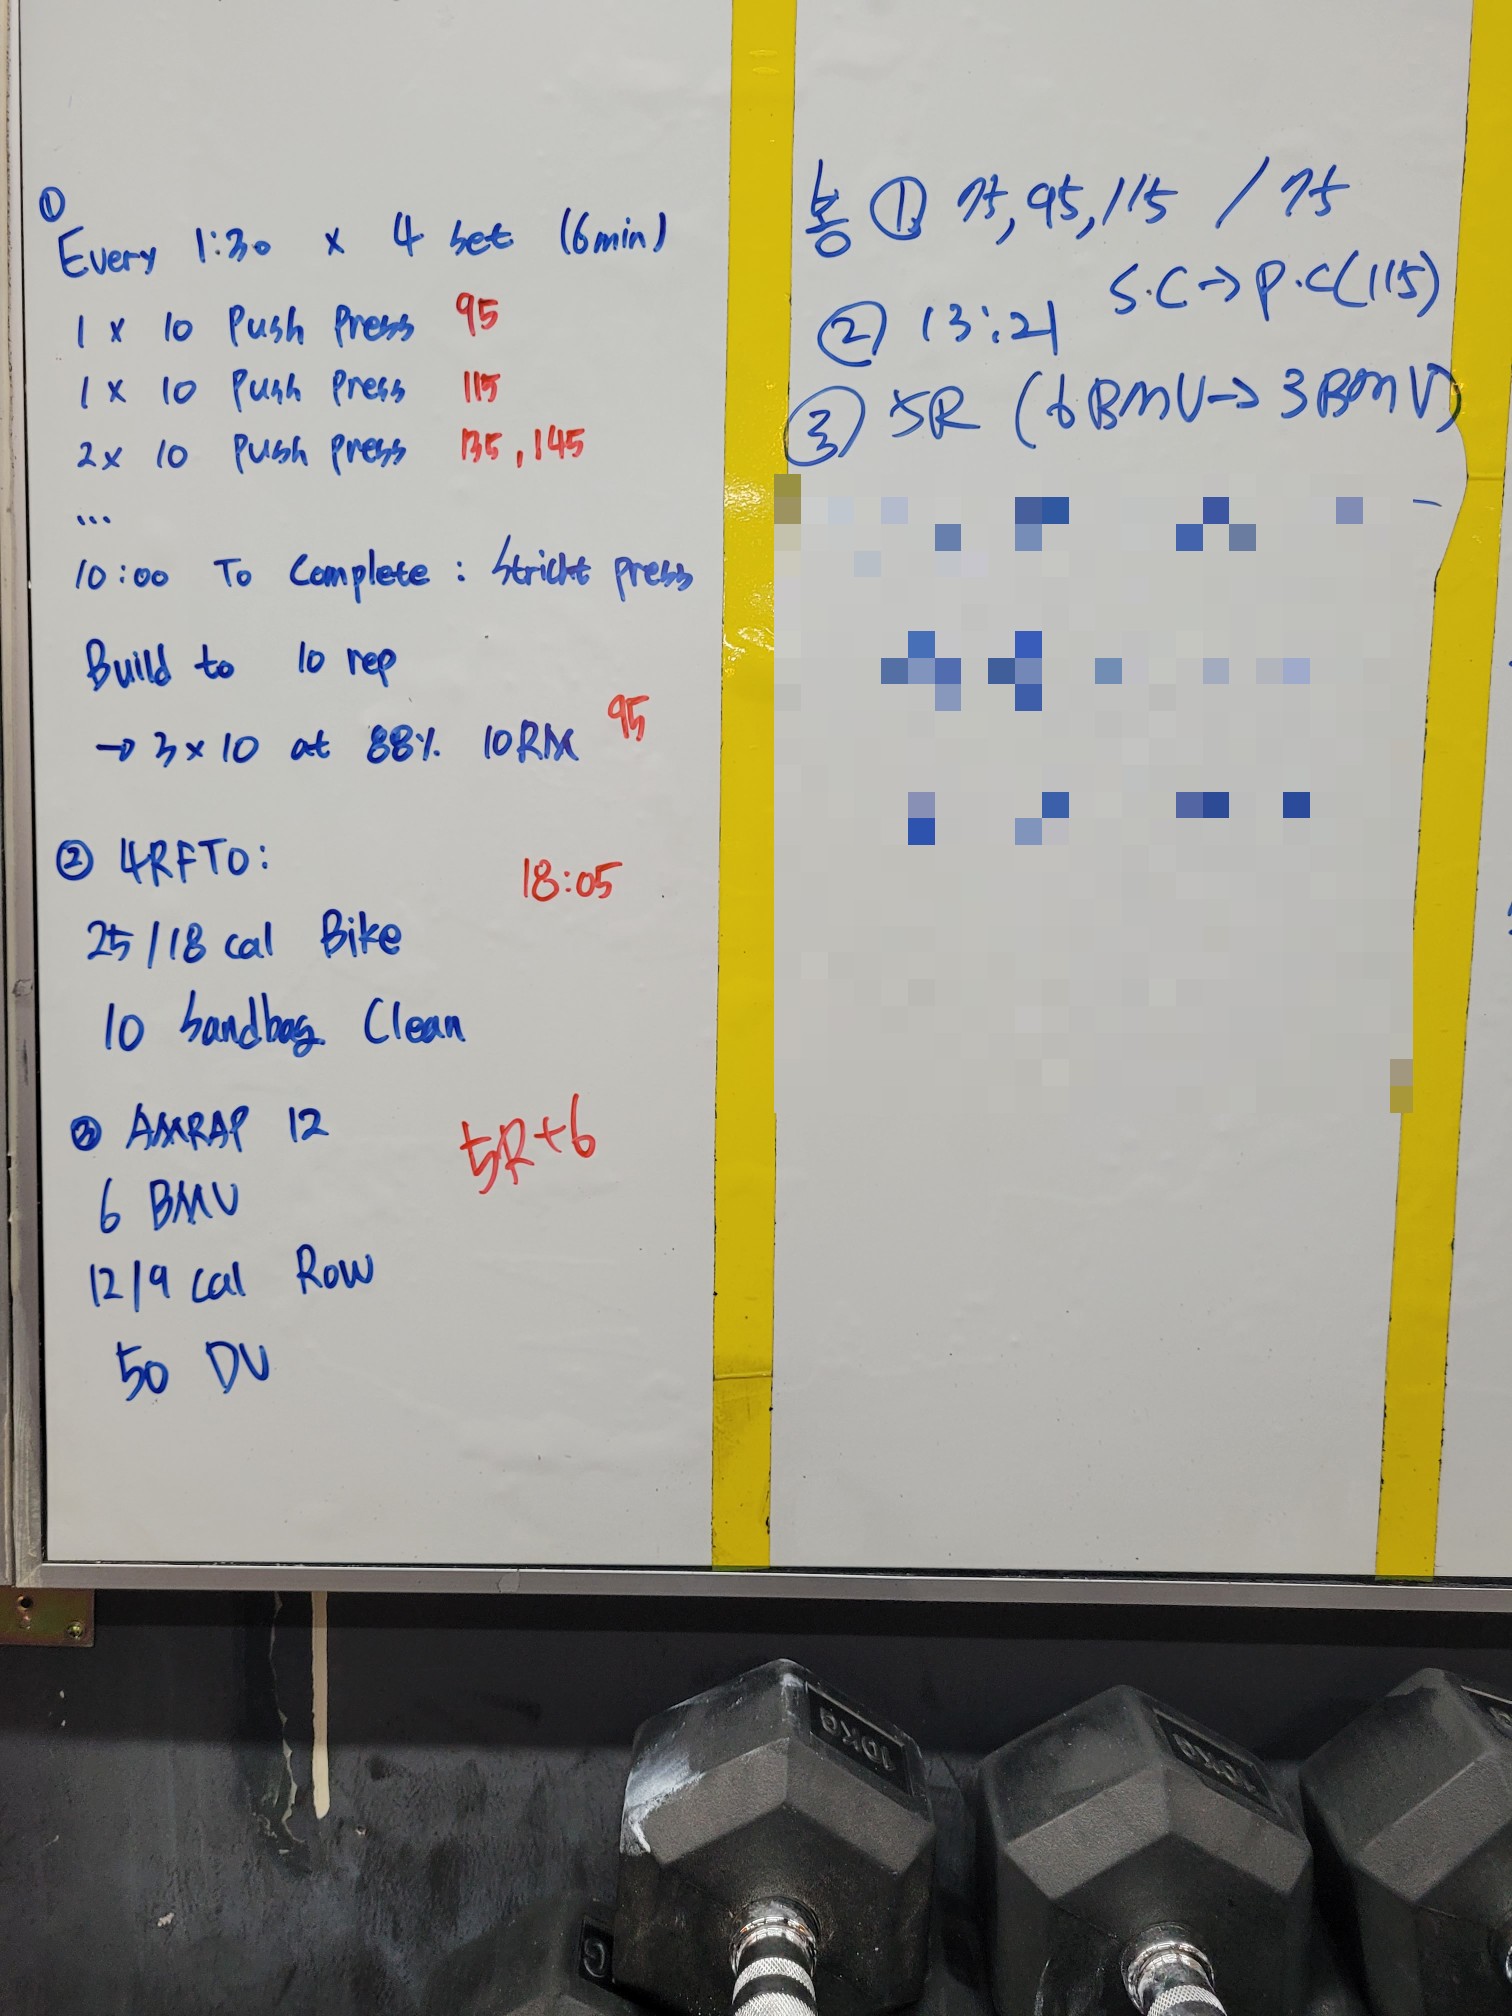 ①
Every 1:30 x 4 set (6min)
1 x 10 Push Press 95
1 x 10 Push Press 115
2 x 10 Push Press 135, 145
...
10:00 To Complete : Strickt press
Build to 10 rep
→ 3 x 10 at 88% 10RM 95
② 4RFTO: 18:05
25/18 cal Bike
10 Sandbag Clean
③ AMRAP 12 5R+6
6 BMU
12/9 cal Row
50 DU
봉 ① 75, 95, 115 / 75
② 13:21 S.C → P.C (115)
③ 5R (6 BMU → 3 BMU)
10KG
10KG